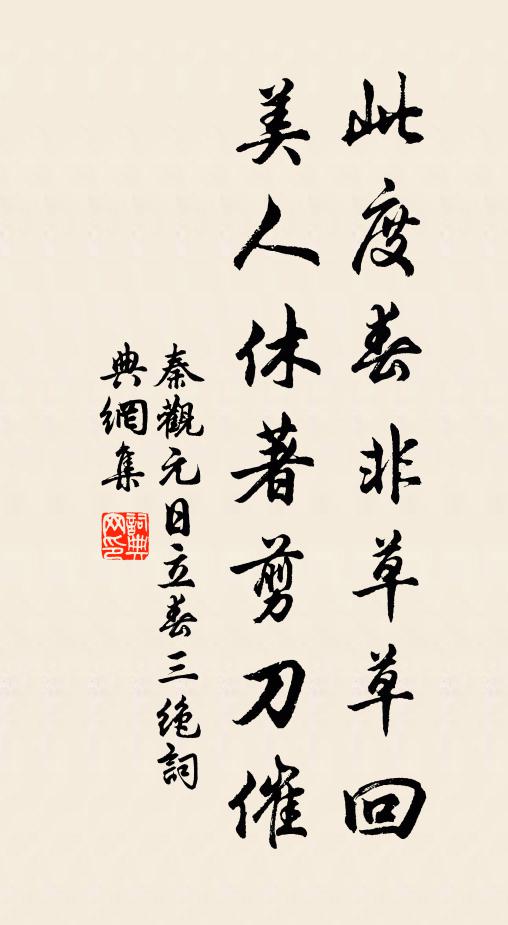 此度春非草草回
美人休著剪刀催
秦觀元日立春三絶詞
典網集
詞典網印